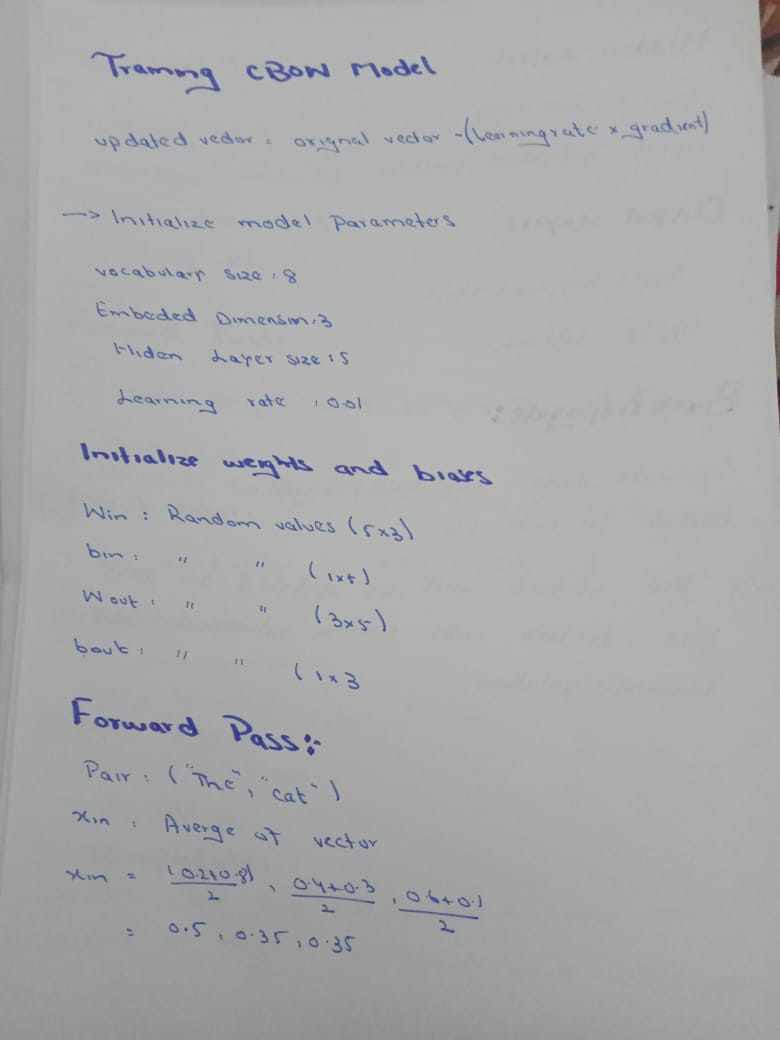 Training CBOW Model
updated vector : orignal vector - (Learning rate x gradient)
-> Initialize model Parameters
vocabulary size : 8
Embeded Dimension : 3
Hiden Layer size : 5
Learning rate : 0.01
Initialize weights and biases
Win : Random values (5x3)
bin : " " (1x5)
Wout : " " (3x5)
bout : " " (1x3
Forward Pass :-
Pair : ("The", "cat")
xin : Averge of vector
xin = (0.2+0.8)/2 , 0.4+0.3/2 , 0.6+0.1/2
= 0.5 , 0.35 , 0.35